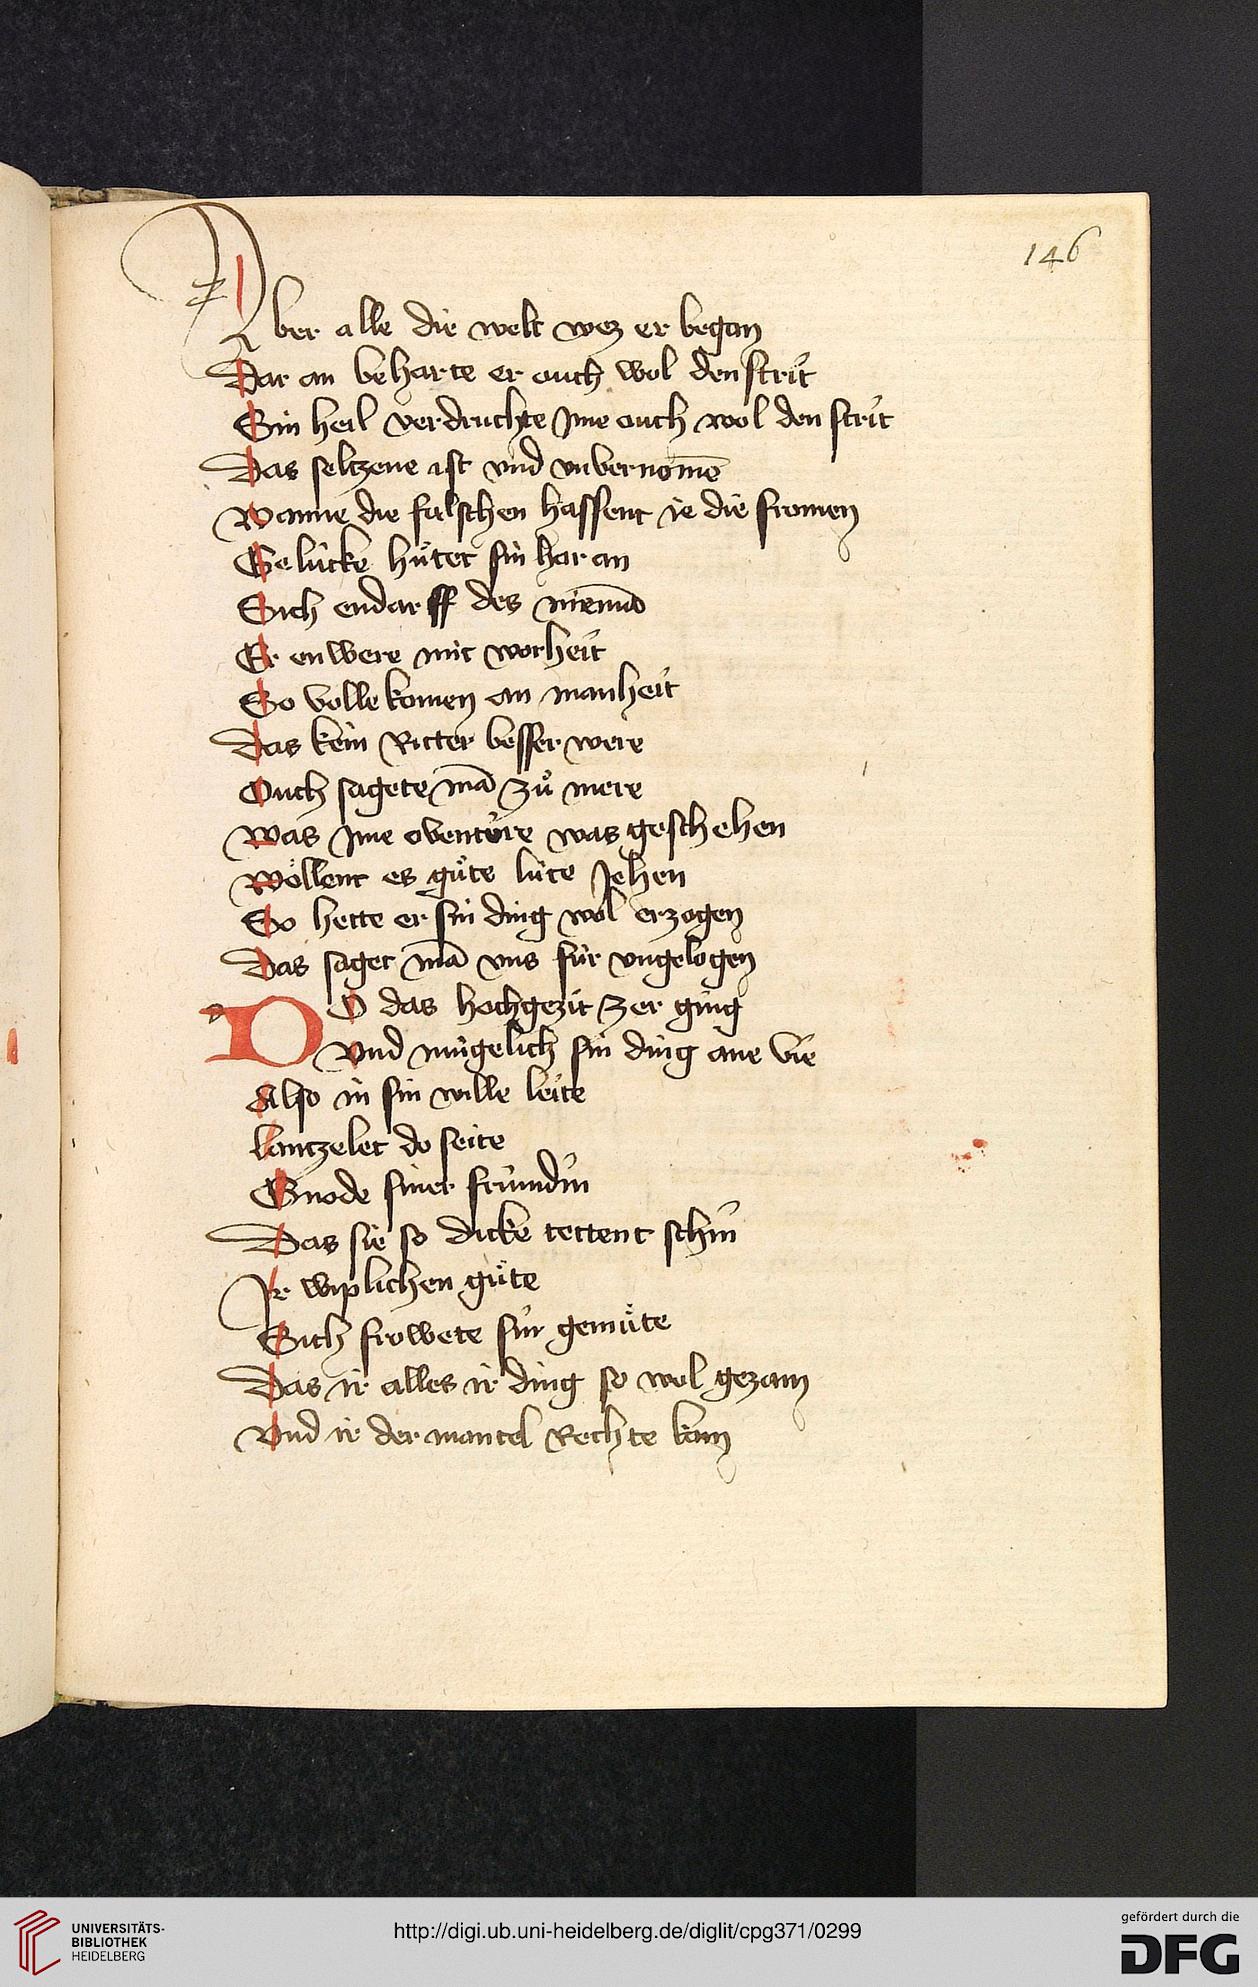 146
Aber alle die welt wez er began
Dar an beharte er ouch wol den strit
Sin heil verdruchte jme ouch wol den strit
Das seltzene ist vnd vnbernomē
Wanne die falschen hassent ie die fromen
Gelücke hütet sin har an
Sich endarff des niemā
Er enwere mit worheit
So vollekomen an manheit
Das kein Ritter besser were
Ouch sagete mā zů mere
Was jme oventúre was geschehen
Wöllent es gůte lúte jehen
So hette er sin ding wol erzogen
Das saget mā vns für vngelogen
DO das hochgezit zer ging
Vnd mügelich sin ding ane vie
Also in sin wille leite
lantzelet do seite
Gnode siner fründin
Das sie so dicke tettent schin
Ir wiplichen gůte
Sich frowete sin gemůte
Das ir alles ir ding so wol gezam
Vnd ir der mantel Rechte kam
UNIVERSITÄTS-
BIBLIOTHEK
HEIDELBERG
http://digi.ub.uni-heidelberg.de/diglit/cpg371/0299
gefördert durch die
DFG